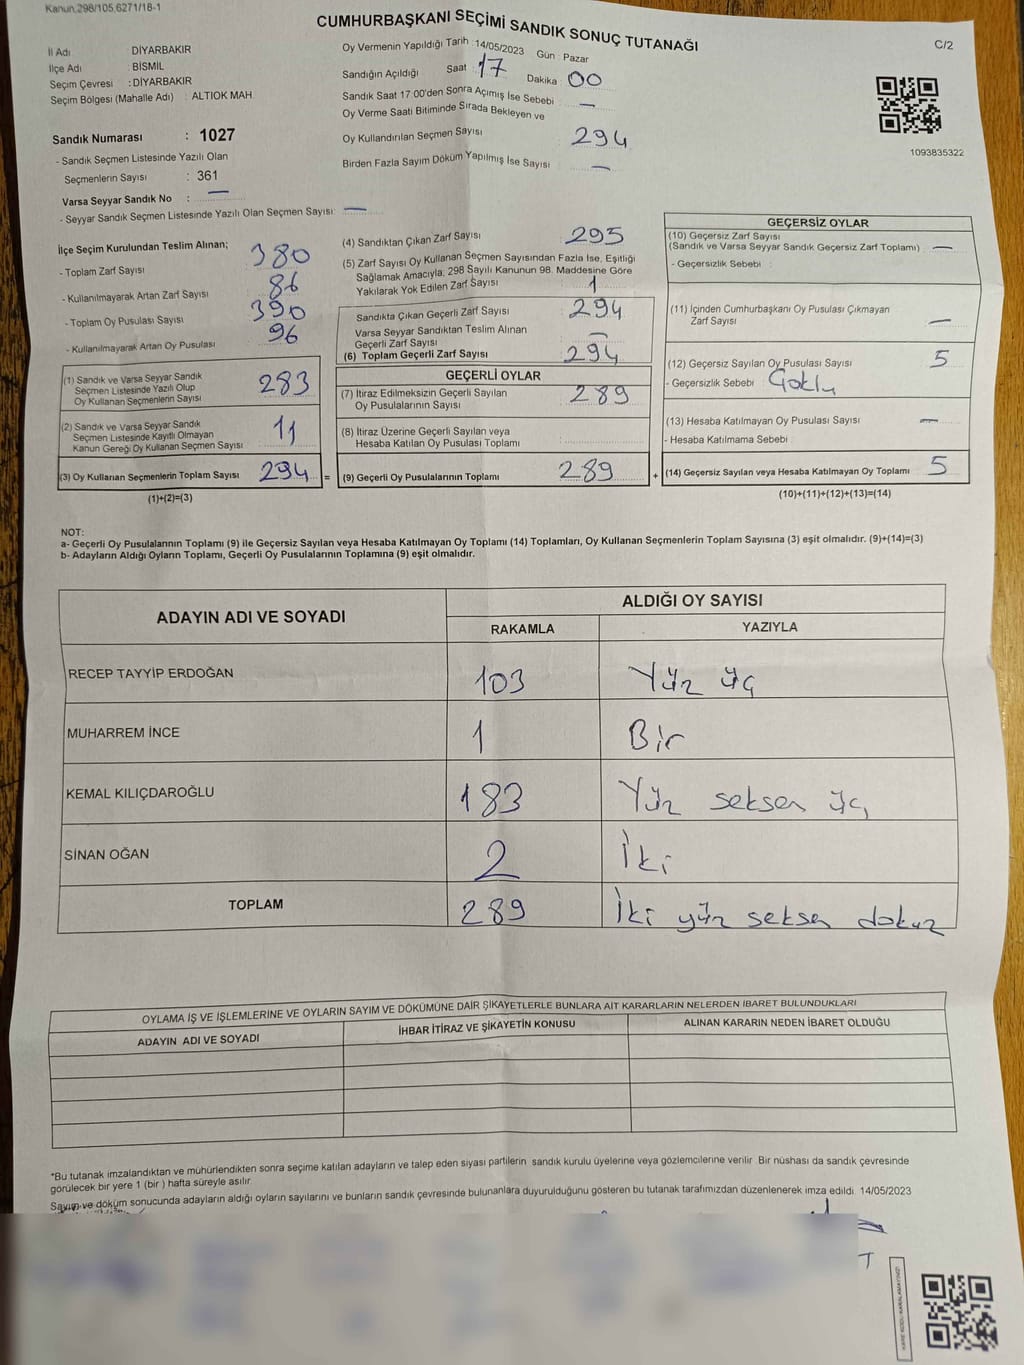 Kanun.298/105,6271/18-1
CUMHURBAŞKANI SEÇİMİ SANDIK SONUÇ TUTANAĞI
C/2
İl Adı DİYARBAKIR
İlçe Adı : BİSMİL
Seçim Çevresi : DİYARBAKIR
Seçim Bölgesi (Mahalle Adı) : ALTIOK MAH
Sandık Numarası : 1027
- Sandık Seçmen Listesinde Yazılı Olan
Seçmenlerin Sayısı : 361
Varsa Seyyar Sandık No : —
- Seyyar Sandık Seçmen Listesinde Yazılı Olan Seçmen Sayısı: —
Oy Vermenin Yapıldığı Tarih : 14/05/2023 Gün : Pazar
Sandığın Açıldığı Saat : 17 Dakika : 00
Sandık Saat 17.00'den Sonra Açımış İse Sebebi : —
Oy Verme Saati Bitiminde Sırada Bekleyen ve
Oy Kullandırılan Seçmen Sayısı 294
Birden Fazla Sayım Döküm Yapılmış İse Sayısı —
1093835322
İlçe Seçim Kurulundan Teslim Alınan;
- Toplam Zarf Sayısı 380
- Kullanılmayarak Artan Zarf Sayısı 86
- Toplam Oy Pusulası Sayısı 390
- Kullanılmayarak Artan Oy Pusulası 96
(1) Sandık ve Varsa Seyyar Sandık
Seçmen Listesinde Yazılı Olup
Oy Kullanan Seçmenlerin Sayısı 283
(2) Sandık ve Varsa Seyyar Sandık
Seçmen Listesinde Kayıtlı Olmayan
Kanun Gereği Oy Kullanan Seçmen Sayısı 11
(3) Oy Kullanan Seçmenlerin Toplam Sayısı 294 =
(1)+(2)=(3)
(4) Sandıktan Çıkan Zarf Sayısı : 295
(5) Zarf Sayısı Oy Kullanan Seçmen Sayısından Fazla İse, Eşitliği
Sağlamak Amacıyla, 298 Sayılı Kanunun 98. Maddesine Göre
Yakılarak Yok Edilen Zarf Sayısı : 1
Sandıkta Çıkan Geçerli Zarf Sayısı : 294
Varsa Seyyar Sandıktan Teslim Alınan
Geçerli Zarf Sayısı : —
(6) Toplam Geçerli Zarf Sayısı : 294
GEÇERLİ OYLAR
(7) İtiraz Edilmeksizin Geçerli Sayılan
Oy Pusulalarının Sayısı : 289
(8) İtiraz Üzerine Geçerli Sayılan veya
Hesaba Katılan Oy Pusulası Toplamı
(9) Geçerli Oy Pusulalarının Toplamı 289 +
GEÇERSİZ OYLAR
(10) Geçersiz Zarf Sayısı
(Sandık ve Varsa Seyyar Sandık Geçersiz Zarf Toplamı) —
- Geçersizlik Sebebi :
(11) İçinden Cumhurbaşkanı Oy Pusulası Çıkmayan
Zarf Sayısı —
(12) Geçersiz Sayılan Oy Pusulası Sayısı 5
- Geçersizlik Sebebi : Çoklu
(13) Hesaba Katılmayan Oy Pusulası Sayısı —
- Hesaba Katılmama Sebebi
(14) Geçersiz Sayılan veya Hesaba Katılmayan Oy Toplamı 5
(10)+(11)+(12)+(13)=(14)
NOT:
a- Geçerli Oy Pusulalarının Toplamı (9) ile Geçersiz Sayılan veya Hesaba Katılmayan Oy Toplamı (14) Toplamları, Oy Kullanan Seçmenlerin Toplam Sayısına (3) eşit olmalıdır. (9)+(14)=(3)
b- Adayların Aldığı Oyların Toplamı, Geçerli Oy Pusulalarının Toplamına (9) eşit olmalıdır.
ADAYIN ADI VE SOYADI ALDIĞI OY SAYISI
RAKAMLA YAZIYLA
RECEP TAYYİP ERDOĞAN 103 Yüz üç
MUHARREM İNCE 1 Bir
KEMAL KILIÇDAROĞLU 183 Yüz seksen üç
SİNAN OĞAN 2 İki
TOPLAM 289 İki yüz seksen dokuz
OYLAMA İŞ VE İŞLEMLERİNE VE OYLARIN SAYIM VE DÖKÜMÜNE DAİR ŞİKAYETLERLE BUNLARA AİT KARARLARIN NELERDEN İBARET BULUNDUKLARI
ADAYIN ADI VE SOYADI İHBAR İTİRAZ VE ŞİKAYETİN KONUSU ALINAN KARARIN NEDEN İBARET OLDUĞU
*Bu tutanak imzalandıktan ve mühürlendikten sonra seçime katılan adayların ve talep eden siyasi partilerin sandık kurulu üyelerine veya gözlemcilerine verilir. Bir nüshası da sandık çevresinde
görülecek bir yere 1 (bir ) hafta süreyle asılır.
Sayım ve döküm sonucunda adayların aldığı oyların sayılarını ve bunların sandık çevresinde bulunanlara duyurulduğunu gösteren bu tutanak tarafımızdan düzenlenerek imza edildi. 14/05/2023
KARE KODU KARALAMAYINIZ!